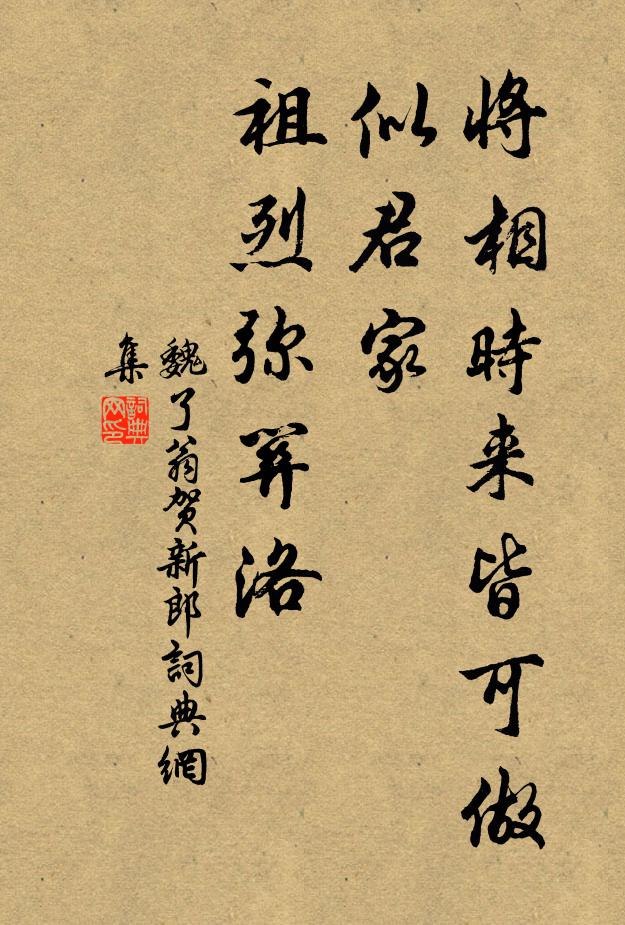 將相時来皆可做
似君家
祖烈弥關洛
魏了翁贺新郎詞典網
集
詞典网印